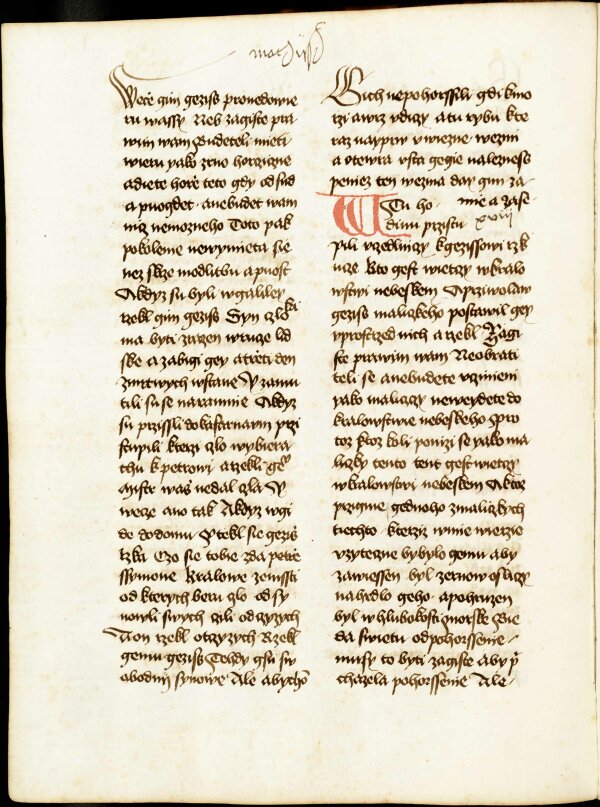 Matheuss
Wece gim gezis pronedowie
ru wassy Neb zagiste pra
wim wam Budeteli mieti
wieru yako zrno horziczne
a diete horze teto gdy odsud
a puogdet anebudet wam
nicz nemozneho Toto pak
pokolenie newymieta sie
nez skrze modlitbu a puost
A kdyz su byli w galiley
rzekl gim gezis Syn czlo
ka
ma byti zrazen w ruce lid
ske a zabigi gey a trzeti den
zmrtwych wstane Y zamu
tili su se naramnie A kdyz
su przissli do kafarnaum przi
stupili kterzi czlo wybiera
chu k petrowi a rzekli gemu
mistr was nedal czla Y
wece ano tak A kdyz wgi
de do domu Przedekl sie gezis
rzka Czo sie tobie zda petrze
ssymone Kralowe zemssti
od kterych beru czlo od sy
nowli swych czili od czyzych
A on rzekl ot czyzych Rzekl
gemu gezis Tehdy gsu sw
obodni synowe Ale abychom
Gich nepohorssili gdi k mo
rzi a wrz vdiczy a tu rybu kte
raz nayprw vwiezne wezmi
a otewra vsta gegie nalezness
peniez ten wezma day gim za
mie a za se
xviii
Tu ho
dinu przistu
pili vczedlniczy k gezissowi rzk
uce Kto gest wietczy w kralo
wstwi nebeskem A przizwolaw
gezis maliczkeho postawil gey
vprostrzed nich a rzekl Zagi
ste prawim wam Neobrati
teli se a nebudete vczinieni
yako maliczczy newendete do
kralowstwie nebeskeho Pro
toz ktoz koli ponizi se yako ma
liczky tento tent gest wietczy
w kralowstwi nebeskem A ktoz
przigme gednoho z maliczkych
tiechto kterziz w mie wierzie
vzyteczne by bylo gemu aby
zawiessen byl zernow osliczy
na hrdlo geho a pohruzen
byl w hlubokosti morske Bie
da swietu od pohorssenie
musy to byti zagiste aby przi
chazela pohorssenie Ale